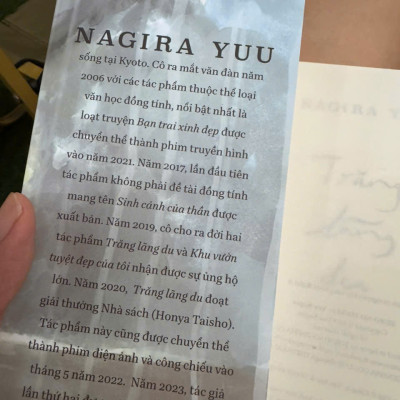 NAGIRA YUU
sống tại Kyoto. Cô ra mắt văn đàn năm
2006 với các tác phẩm thuộc thể loại
văn học đồng tính, nổi bật nhất là
loạt truyện Bạn trai xinh đẹp được
chuyển thể thành phim truyền hình
vào năm 2021. Năm 2017, lần đầu tiên
tác phẩm không phải đề tài đồng tính
mang tên Sinh cảnh của thần được
xuất bản. Năm 2019, cô cho ra đời hai
tác phẩm Trăng lãng du và Khu vườn
tuyệt đẹp của tôi nhận được sự ủng hộ
lớn. Năm 2020, Trăng lãng du đoạt
giải thưởng Nhà sách (Honya Taisho).
Tác phẩm này cũng được chuyển thể
thành phim điện ảnh và công chiếu vào
tháng 5 năm 2022. Năm 2023, tác giả
lần thứ hai